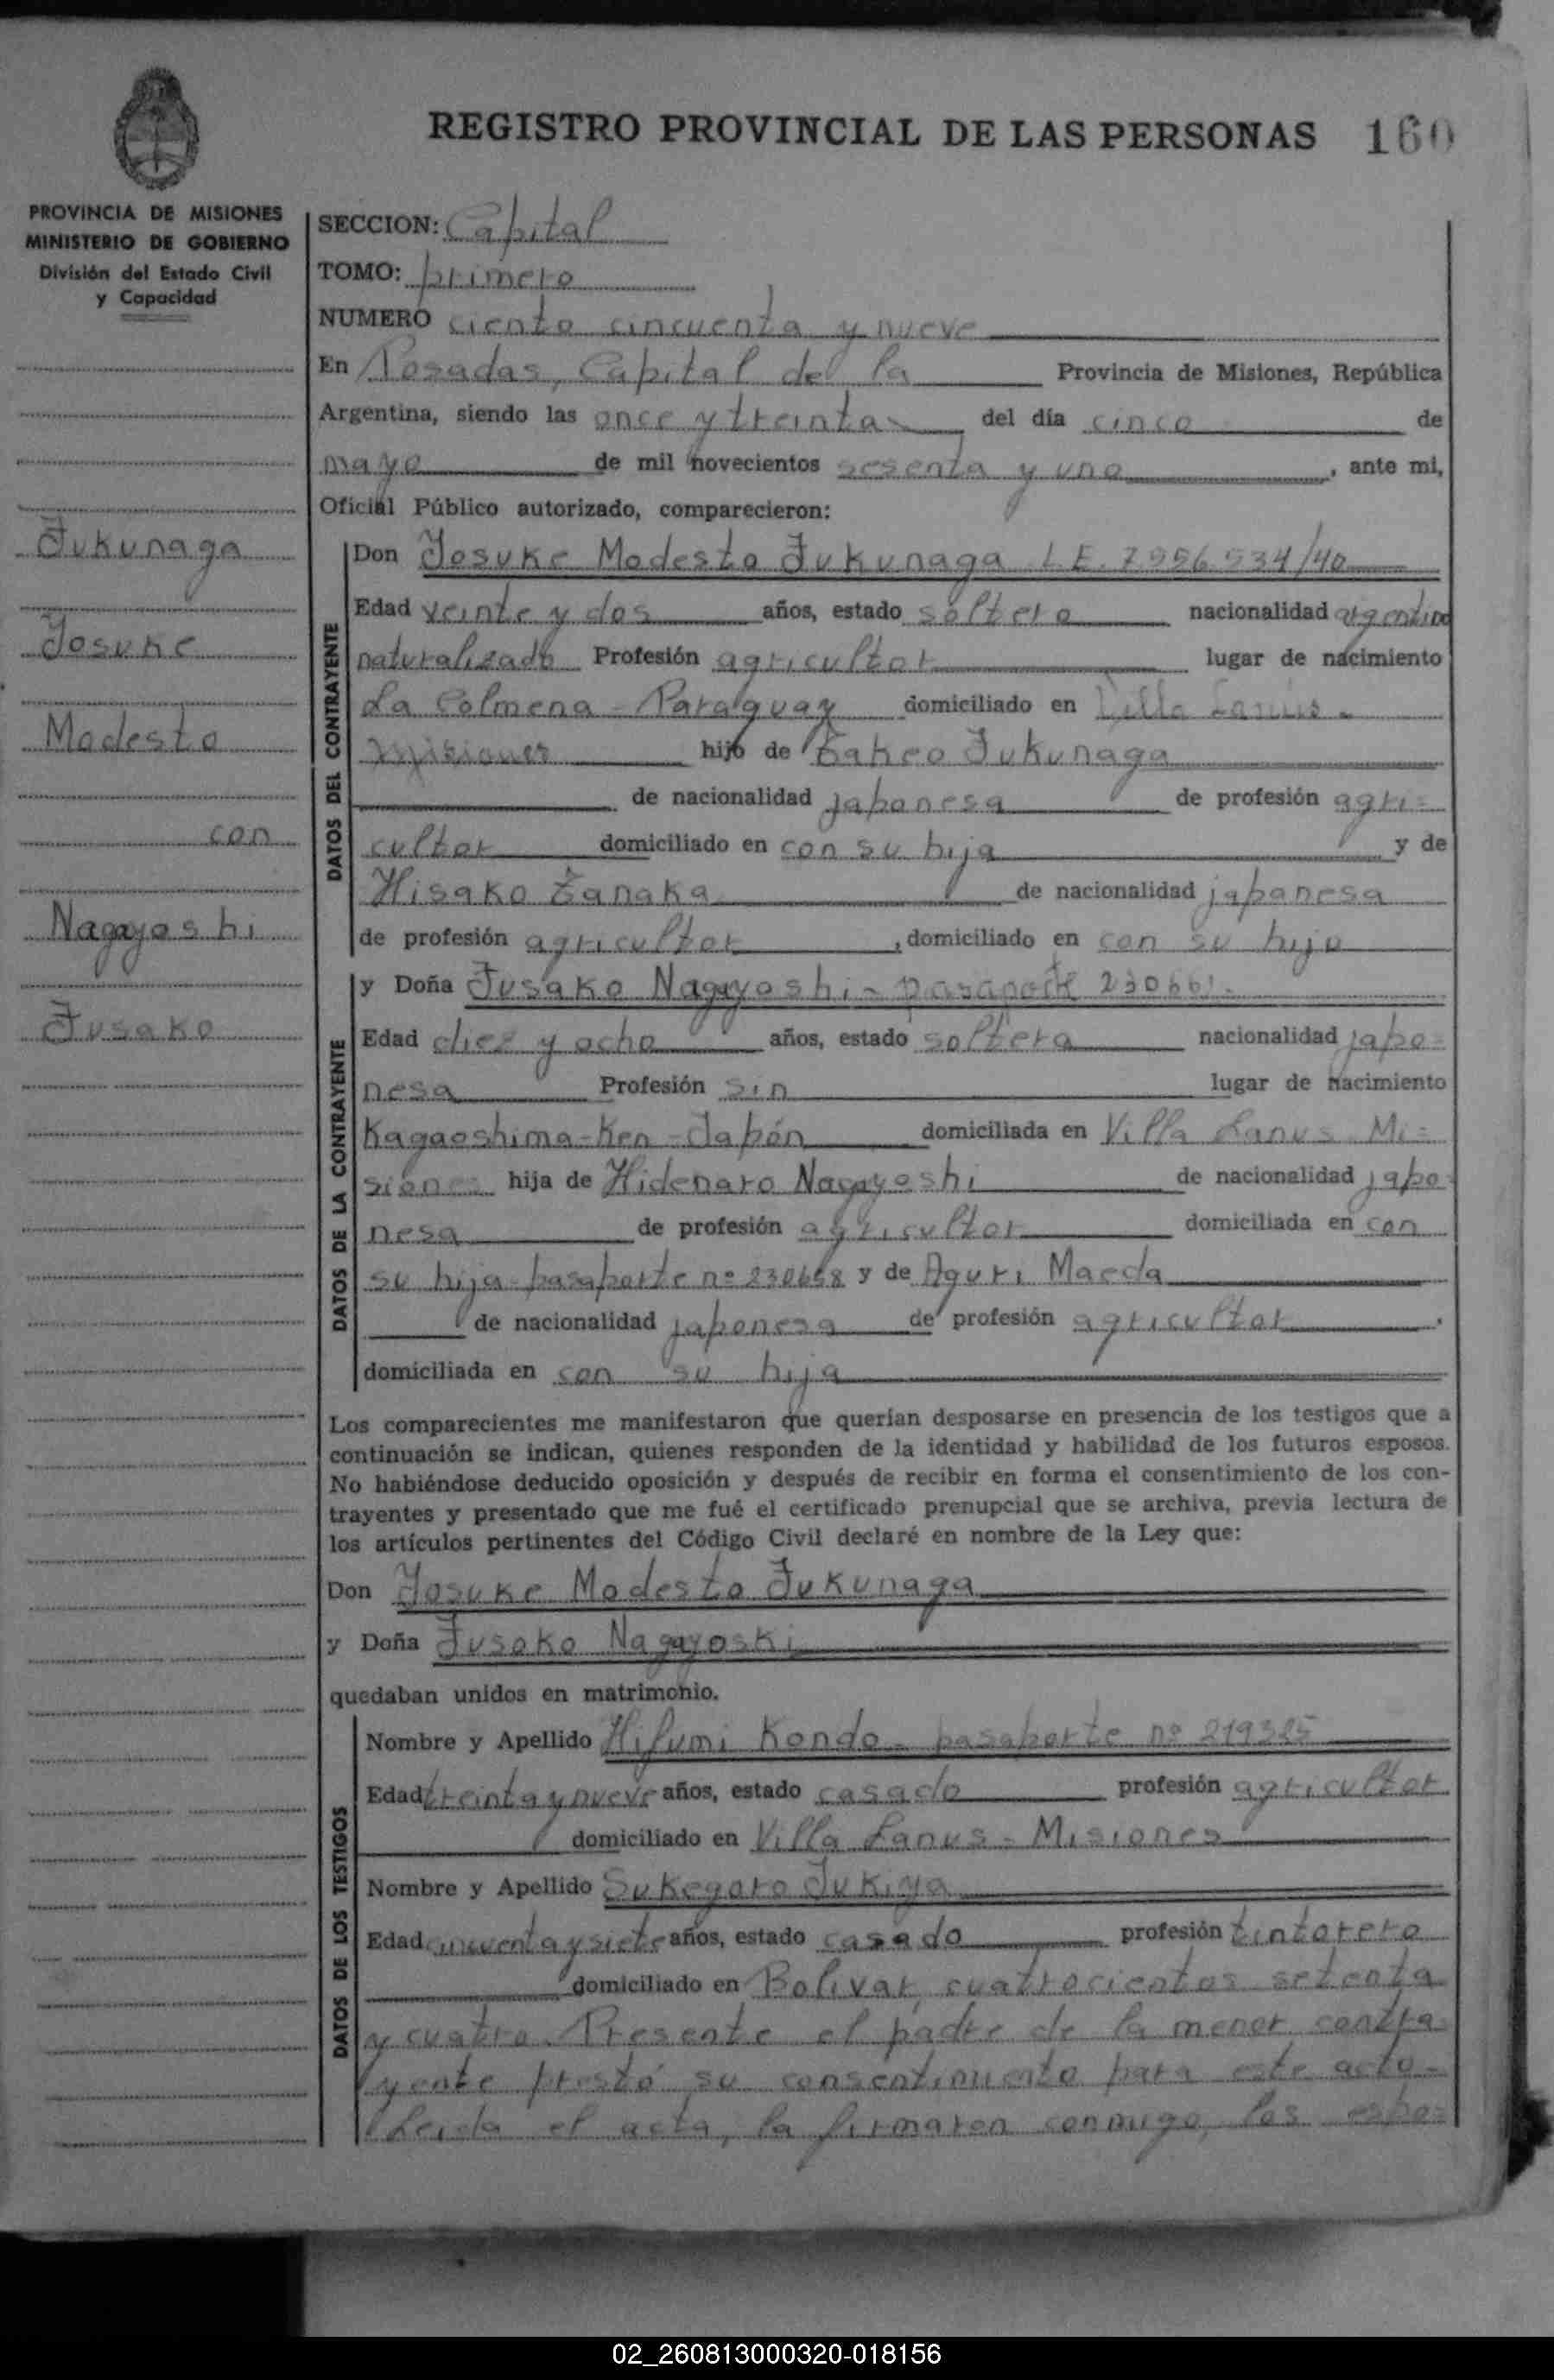 REGISTRO PROVINCIAL DE LAS PERSONAS 160
PROVINCIA DE MISIONES
MINISTERIO DE GOBIERNO
División del Estado Civil
y Capacidad
Fukunaga
Yosuke
Modesto
con
Nagayoshi
Fusako
SECCION: Capital
TOMO: primero
NUMERO ciento cincuenta y nueve
En Posadas, Capital de la Provincia de Misiones, República
Argentina, siendo las once y treinta del día cinco de
mayo de mil novecientos sesenta y uno, ante mi,
Oficial Público autorizado, comparecieron:
DATOS DEL CONTRAYENTE
Don Yosuke Modesto Fukunaga L.E. 7.956.534/40
Edad veinte y dos años, estado soltero nacionalidad argentino
naturalizado Profesión agricultor lugar de nacimiento
La Colmena - Paraguay domiciliado en Villa Lanús -
Misiones hijo de Fukunaga
de nacionalidad japonesa de profesión agri=
cultor domiciliado en con su hija y de
Hisako Tanaka de nacionalidad japonesa
de profesión agricultor, domiciliado en con su hijo
DATOS DE LA CONTRAYENTE
y Doña Fusako Nagayoshi - pasaporte 230661.
Edad diez y ocho años, estado soltera nacionalidad japo=
nesa Profesión sin lugar de nacimiento
Kagaoshima-Ken-Japón domiciliada en Villa Lanus Mi=
siones hija de Hidenaro Nagayoshi de nacionalidad japo=
nesa de profesión agricultor domiciliada en con
su hija pasaporte nº 230658 y de Aguri Maeda
de nacionalidad japonesa de profesión agricultor.
domiciliada en con su hija
Los comparecientes me manifestaron que querían desposarse en presencia de los testigos que a
continuación se indican, quienes responden de la identidad y habilidad de los futuros esposos.
No habiéndose deducido oposición y después de recibir en forma el consentimiento de los con-
trayentes y presentado que me fué el certificado prenupcial que se archiva, previa lectura de
los artículos pertinentes del Código Civil declaré en nombre de la Ley que:
Don Yosuke Modesto Fukunaga
y Doña Fusako Nagayoski
quedaban unidos en matrimonio.
DATOS DE LOS TESTIGOS
Nombre y Apellido Hifumi Kondo - pasaporte nº 219325
Edad treinta y nueve años, estado casado profesión agricultor
domiciliado en Villa Lanus - Misiones
Nombre y Apellido Sukegoro Fukiya
Edad cincuenta y siete años, estado casado profesión tintorero
domiciliado en Bolivar, cuatrocientos setenta
y cuatro. Presente el padre de la menor contra=
yente prestó su consentimiento para este acto-
Leida el acta, la firmaron conmigo, los espo=
02_260813000320-018156